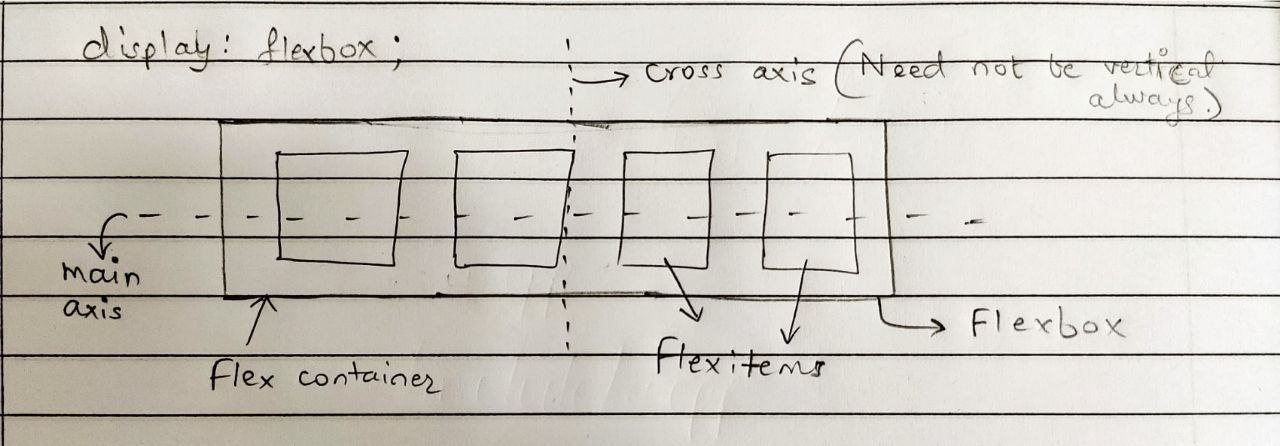 display: flexbox;
cross axis (Need not be vertical
always.)
main
axis
Flex container
Flexitems
Flexbox